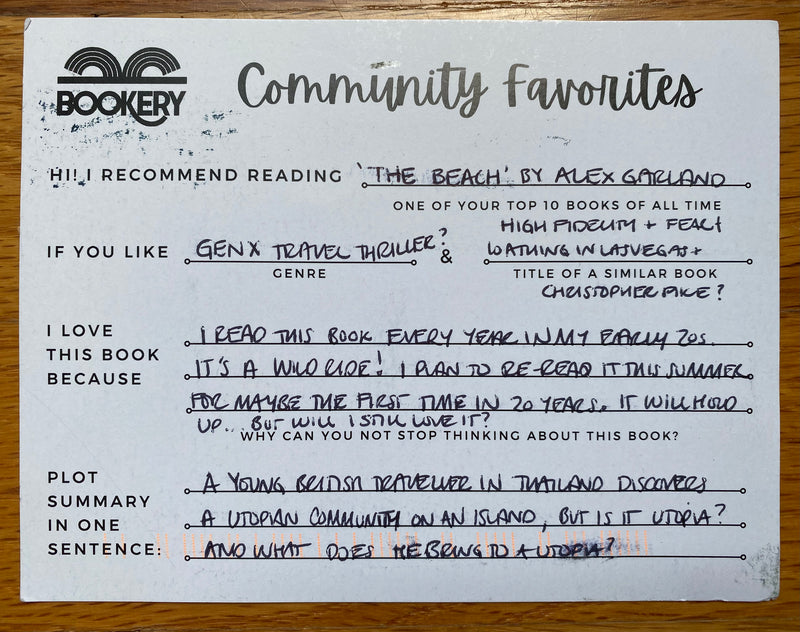 BOOKERY
Community Favorites
HI! I RECOMMEND READING 'THE BEACH' BY ALEX GARLAND
ONE OF YOUR TOP 10 BOOKS OF ALL TIME
HIGH FIDELITY + FEAR &
IF YOU LIKE GENX TRAVEL THRILLER? & LOATHING IN LAS VEGAS +
GENRE TITLE OF A SIMILAR BOOK
CHRISTOPHER PIKE?
I LOVE
THIS BOOK
BECAUSE
I READ THIS BOOK EVERY YEAR IN MY EARLY 20S.
IT'S A WILD RIDE! I PLAN TO RE-READ IT THIS SUMMER
FOR MAYBE THE FIRST TIME IN 20 YEARS. IT WILL HOLD
UP... BUT WILL I STILL LOVE IT?
WHY CAN YOU NOT STOP THINKING ABOUT THIS BOOK?
PLOT
SUMMARY
IN ONE
SENTENCE:
A YOUNG BRITISH TRAVELLER IN THAILAND DISCOVERS
A UTOPIAN COMMUNITY ON AN ISLAND, BUT IS IT UTOPIA?
AND WHAT DOES HE BRING TO A UTOPIA?